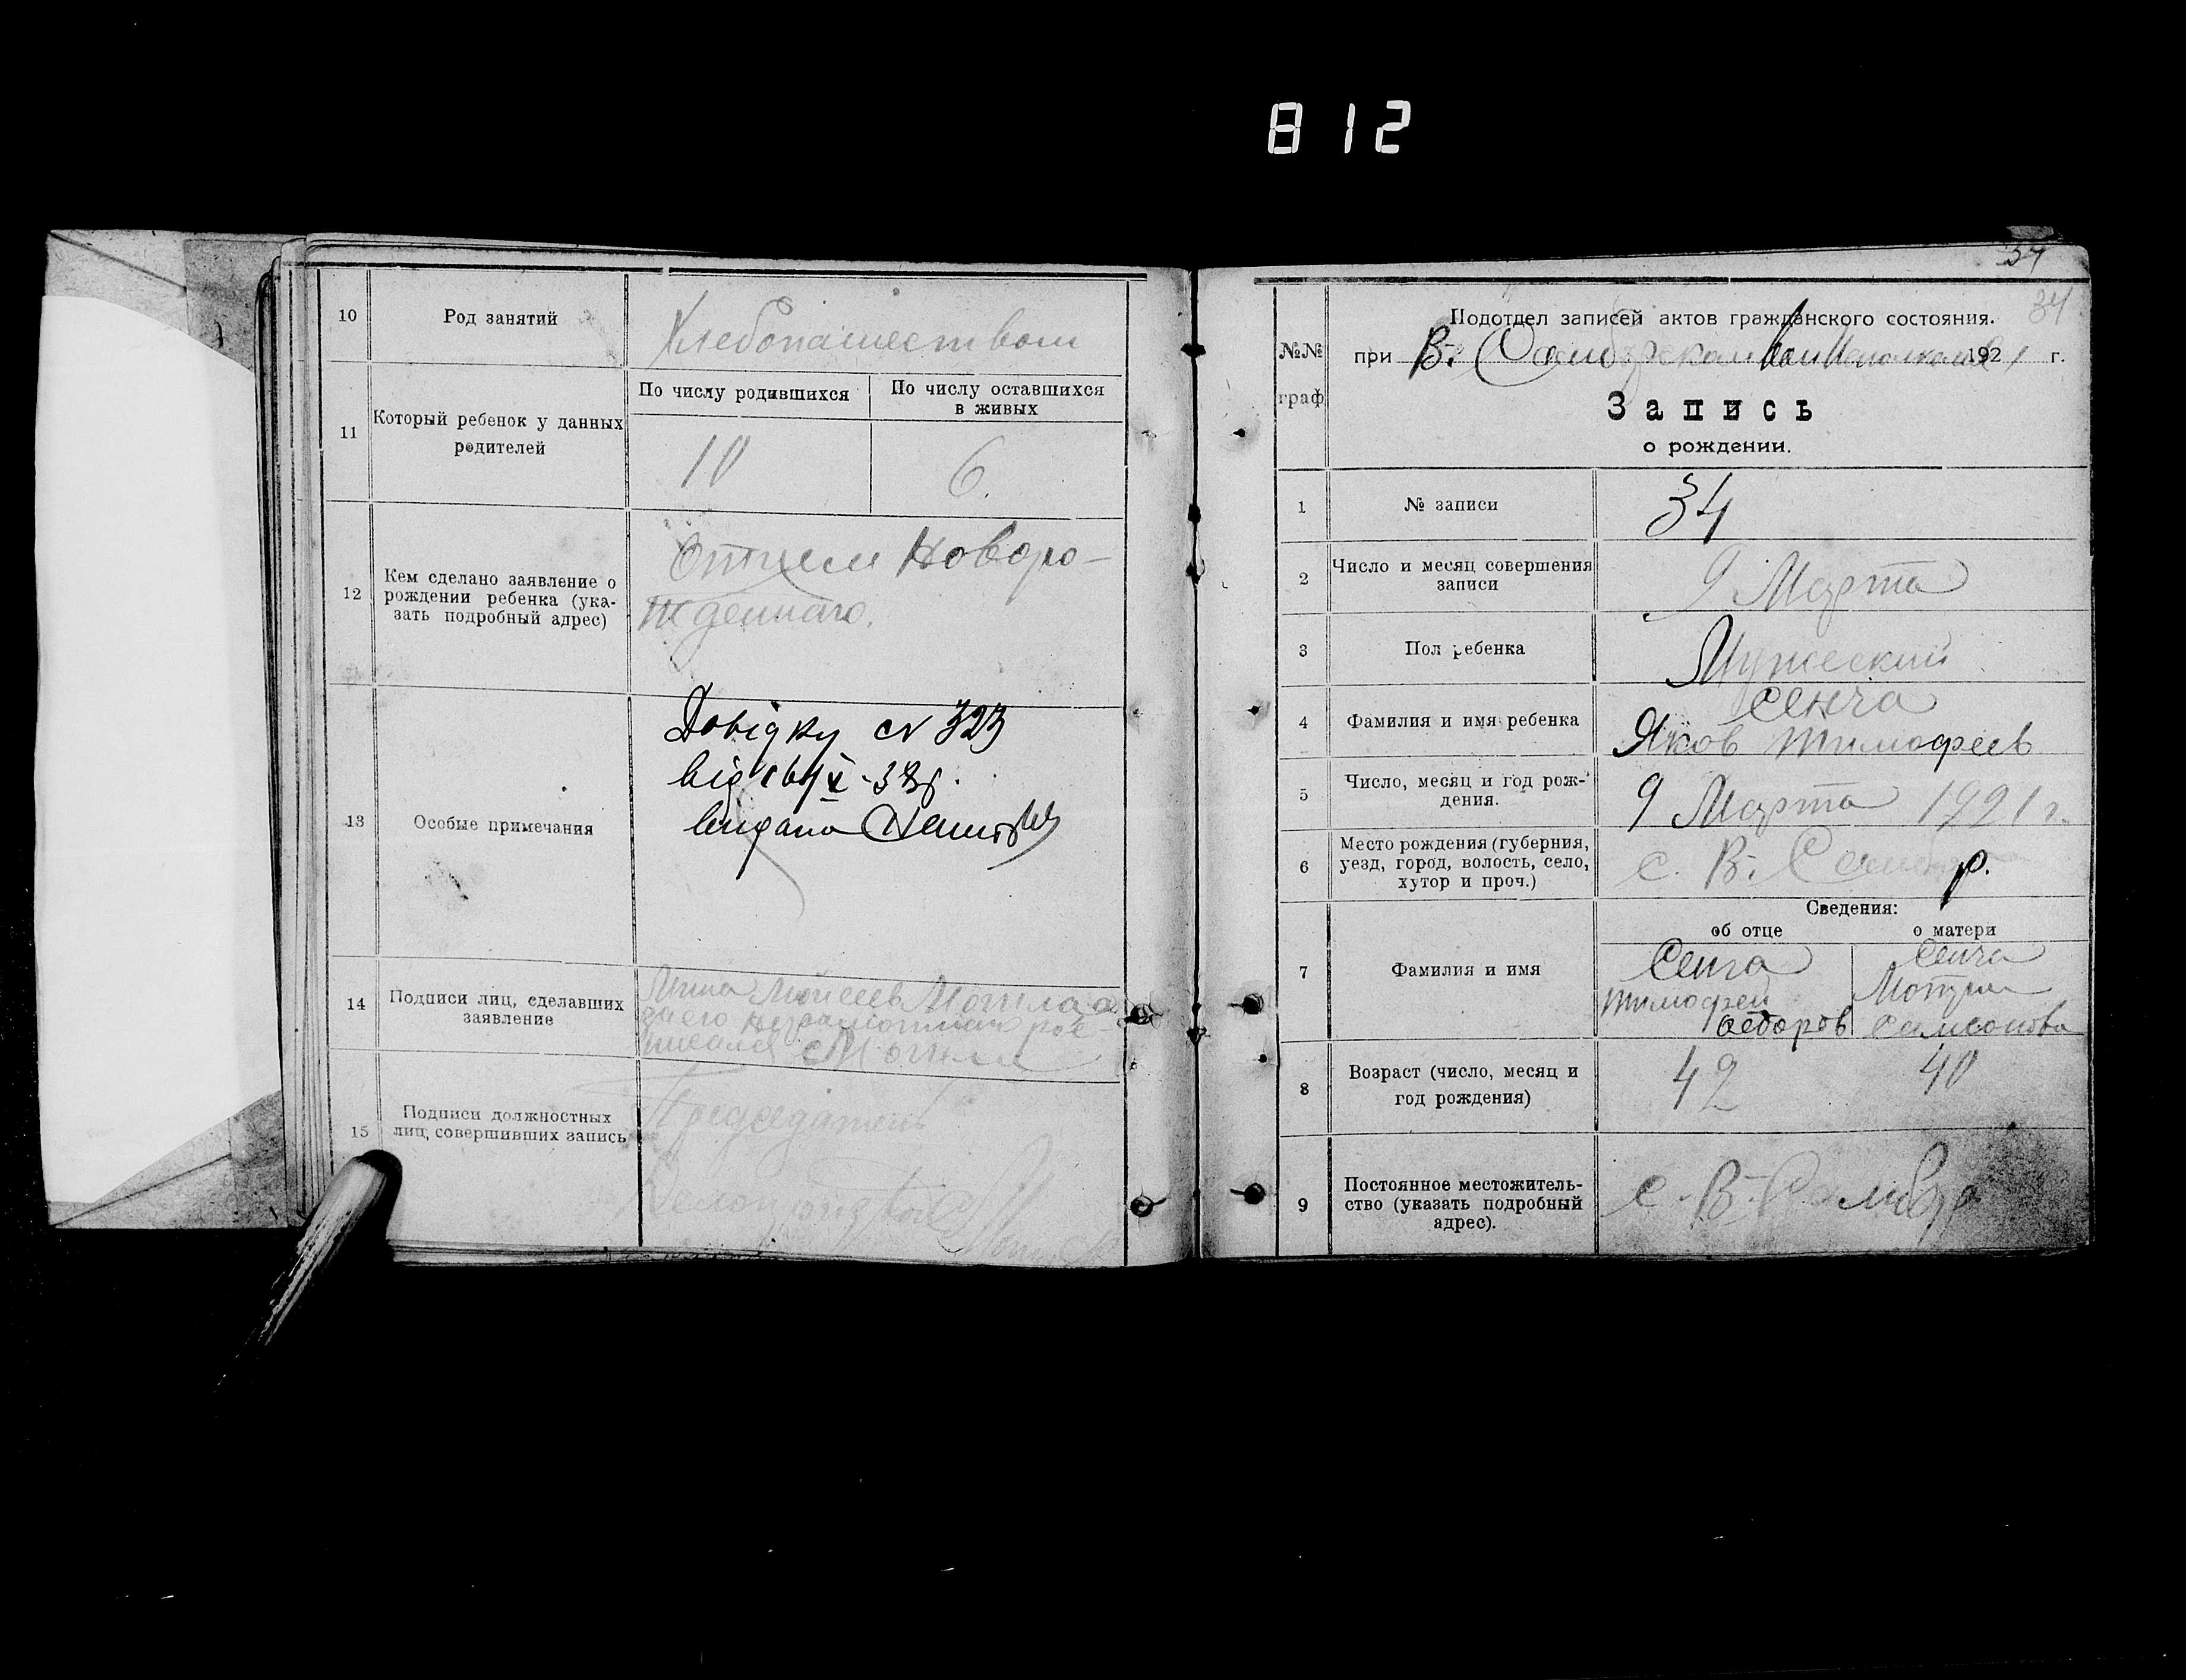 812
10
Род занятий
Хлебопашеством
11
Который ребенок у данных
родителей
По числу родившихся
По числу оставшихся
в живых
10
6.
12
Кем сделано заявление о
рождении ребенка (ука-
зать подробный адрес)
Отцем Новоро-
жденнаго.
13
Особые примечания
Довідку № 323
від
видана
14
Подписи лиц, сделавших
заявление
15
Подписи должностных
лиц, совершивших запись
Председатель
34
34
№№
граф
Подотдел записей актов гражданского состояния.
при В. 1921 г.
Запись
о рождении.
1
№ записи
34
2
Число и месяц совершения
записи
9 Марта
3
Пол ребенка
Мужеский
4
Фамилия и имя ребенка
Сенча
Яков Тимофеев
5
Число, месяц и год рож-
дения.
9 Марта 1921 г.
6
Место рождения (губерния,
уезд, город, волость, село,
хутор и проч.)
с. В.
Сведения:
об отце
о матери
7
Фамилия и имя
Сенча
Тимофей
Федоров
Сенча
Самсонова
8
Возраст (число, месяц и
год рождения)
42
40
9
Постоянное местожитель-
ство (указать подробный
адрес).
с. В.